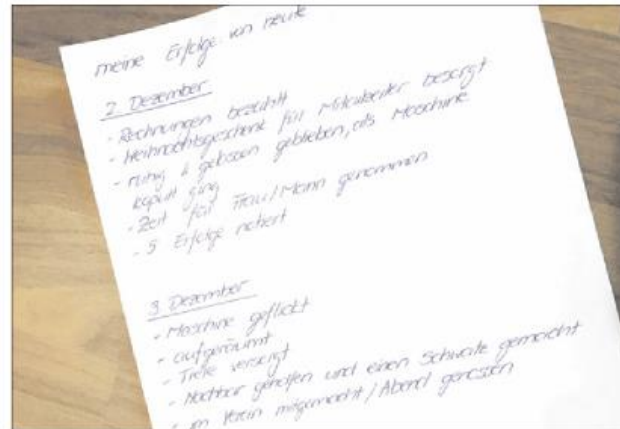 meine Erfolge von heute
2. Dezember
- Rechnungen bezahlt
- Weihnachtsgeschenk für Mitarbeiter besorgt
- ruhig & gelassen geblieben, als Maschine
kaputt ging
- Zeit für Frau/Mann genommen
- 5 Erfolge notiert
3. Dezember
- Maschine geflickt
- aufgeräumt
- Tiere versorgt
- Nachbar geholfen und einen Schwatz gemacht
- im Verein mitgemacht/Abend genossen